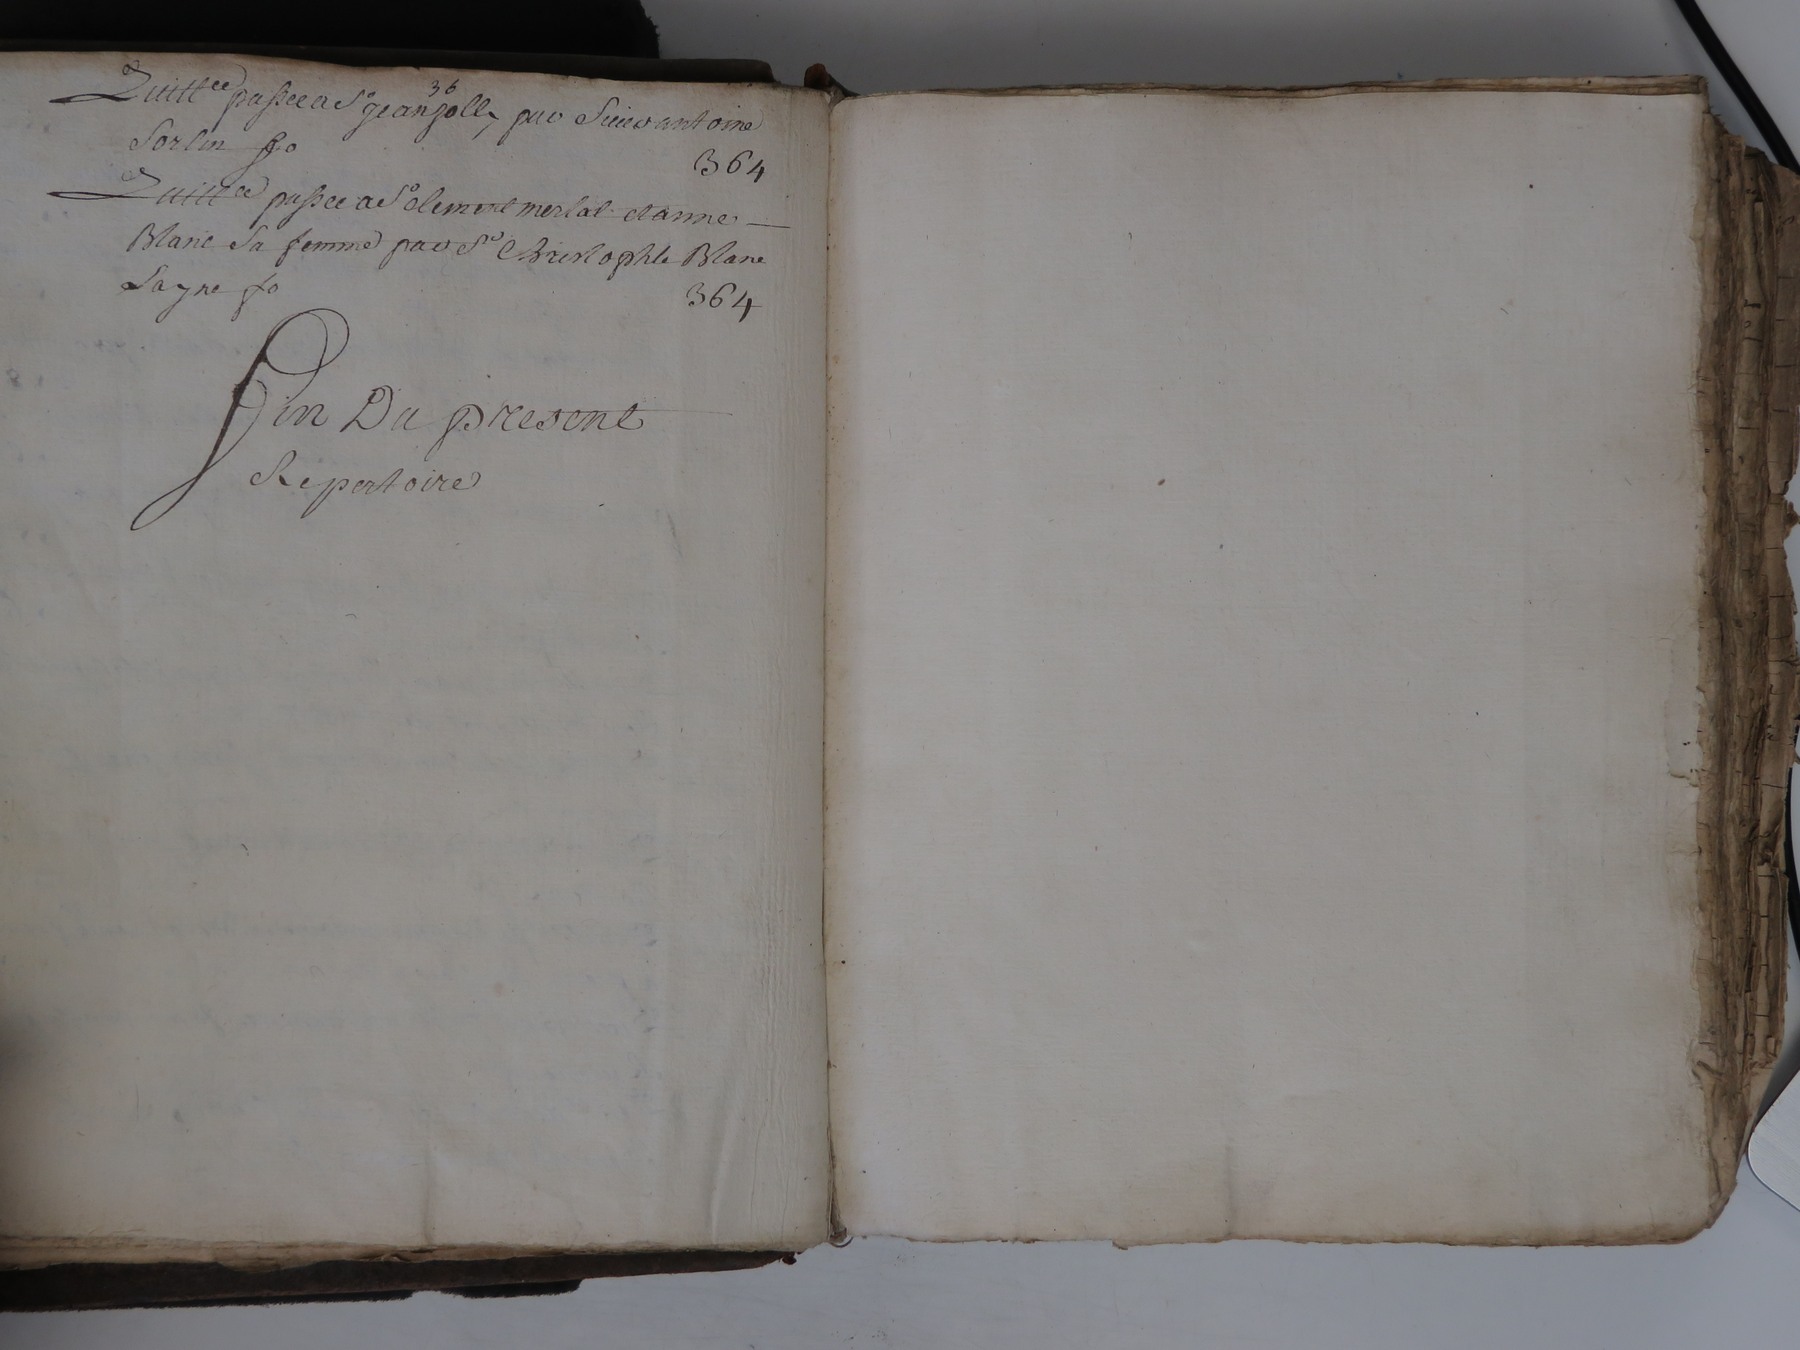 36
Quittce passee a Sr jean jolly par Sieur antoine
Sorlin fo 364
Quittce passee a Sr clement merlat et anne
Blanc Sa femme par Sr Christophle Blanc
Layne fo 364
Fin Du present
Repertoire